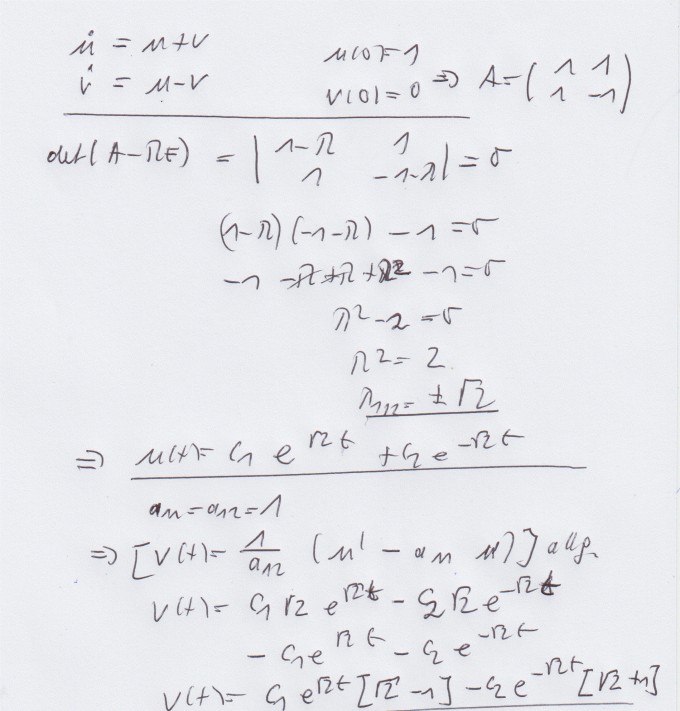 u̇ = u+v    u(0)=1
v̇ = u-v    v(0)=0 => A=( 1 1 1 -1 )
det(A-λE) = | 1-λ 1 1 -1-λ | = 0
(1-λ)(-1-λ) -1 =0
-1 -λ+λ+λ² -1=0
λ²-2 =0
λ²= 2
λ₁,₂= ±√2
=> u(t)= C₁ e^(√2 t) + C₂ e^(-√2 t)
a₁₁=a₁₂=1
=> [v(t)= 1/a₁₂ (u' - a₁₁ u)] allg.
v(t)= C₁ √2 e^(√2 t) - C₂ √2 e^(-√2 t)
- C₁ e^(√2 t) - C₂ e^(-√2 t)
v(t)= C₁ e^(√2 t) [√2 -1] - C₂ e^(-√2 t) [√2 +1]